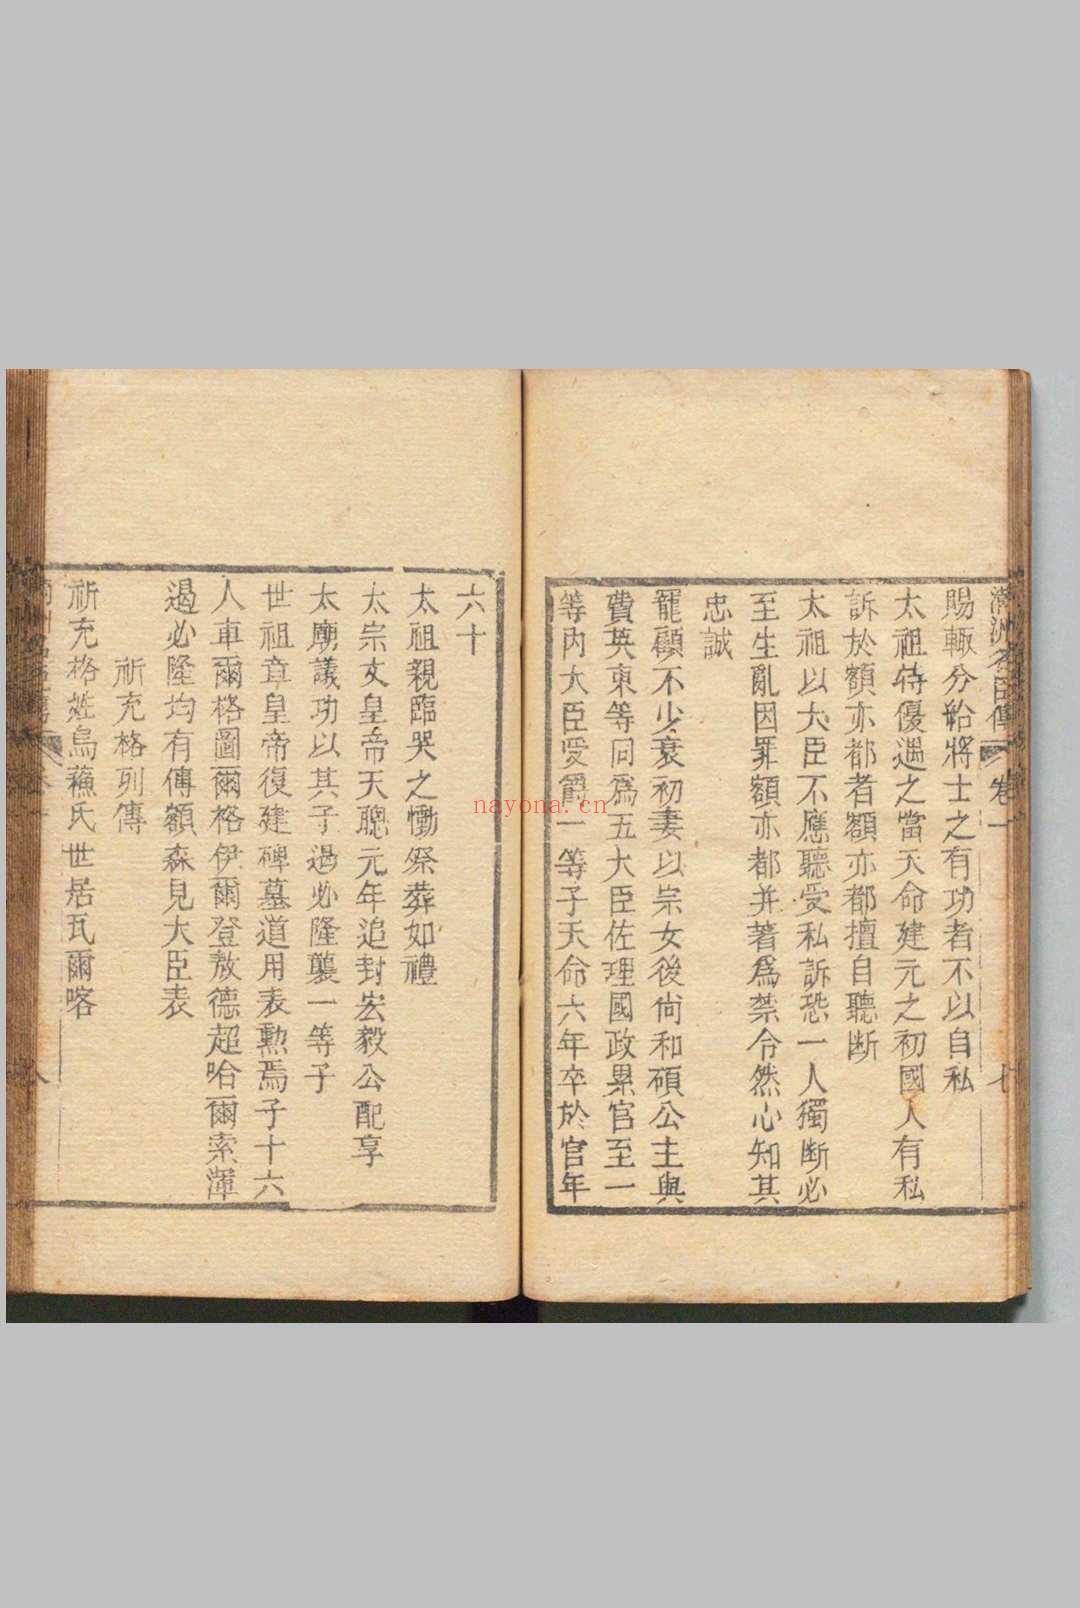 滿洲名臣傳 卷一 七
賜輙分給將士之有功者不以自私
太祖特優遇之當天命建元之初國人有私
訴於額亦都者額亦都擅自聽断
太祖以大臣不應聽受私訴恐一人獨断必
至生亂因罪額亦都并著為禁令然心知其
忠誠
寵顧不少衰初妻以宗女後尙和碩公主與
費英東等同爲五大臣佐理國政累官至一
等内大臣受爵一等子天命六年卒於官年
六十
太祖親臨哭之慟祭葬如禮
太宗文皇帝天聰元年追封宏毅公配享
太廟議功以其子遏必隆襲一等子
世祖章皇帝復建碑墓道用表勲焉子十六
人車爾格圖爾格伊爾登敖德超哈爾索渾
遏必隆均有傳額森見大臣表
祈充格列傳
祈充格姓烏蘓氏世居瓦爾喀
八
nayona.cn